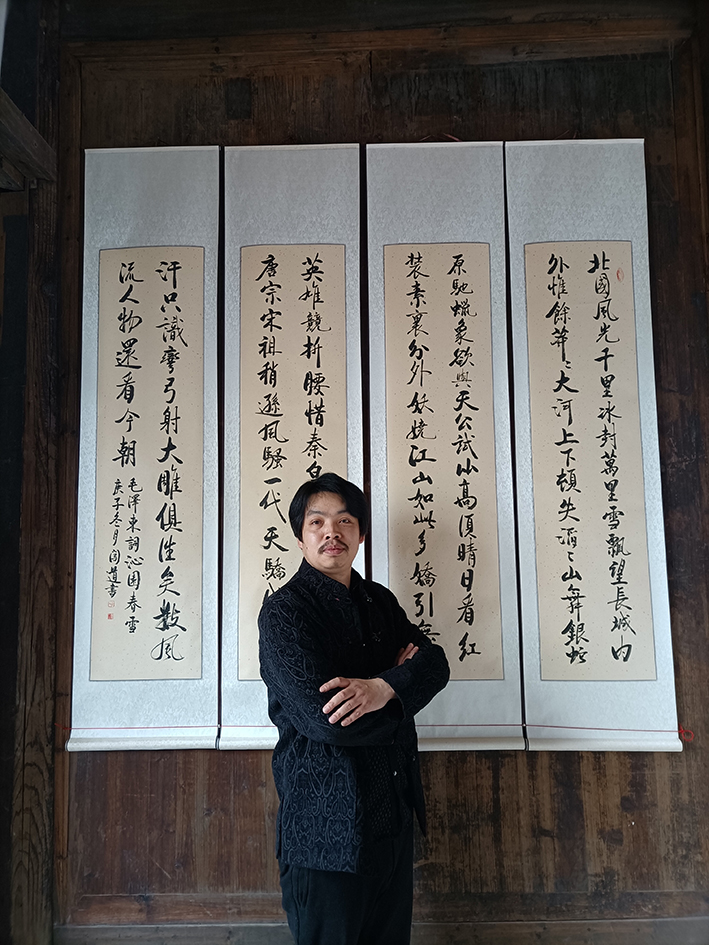 北國風光千里冰封萬里雪飄望長城内
外惟餘莽〻大河上下頓失滔〻山舞銀蛇
原馳蠟象欲與天公試比高須晴日看紅
裝素裹分外妖嬈江山如此多嬌引無
英雄競折腰惜秦
唐宗宋祖稍遜風騷一代天驕
汗只識彎弓射大雕俱往矣數風
流人物還看今朝
毛澤東詞沁園春雪
庚子冬月道書